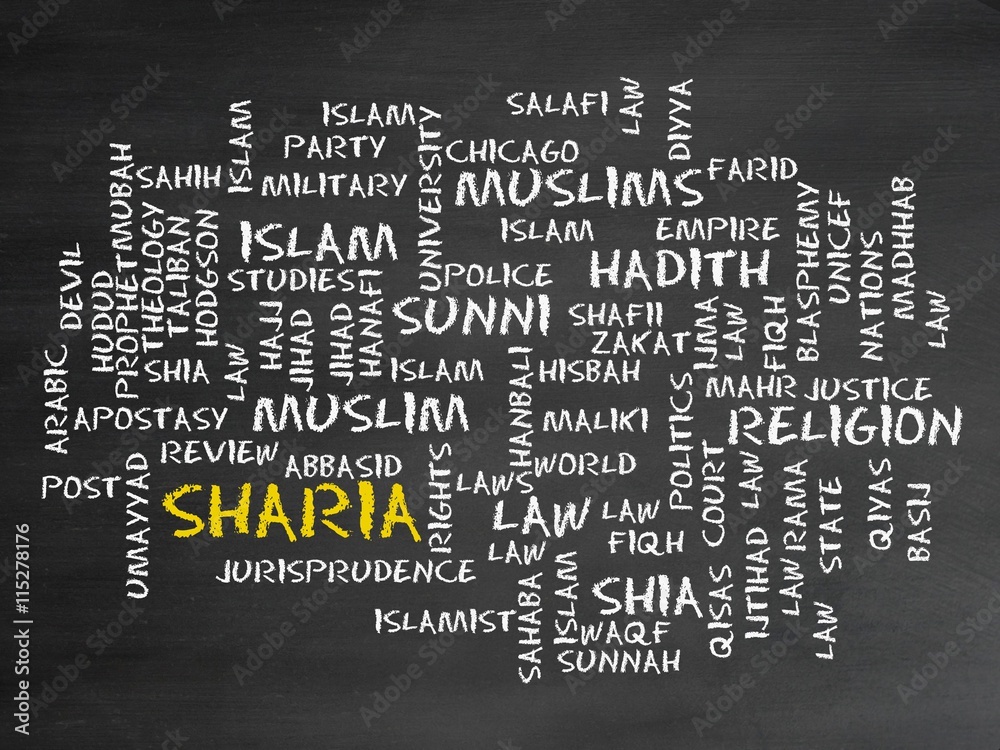 SALAFI
LAW
DIYYA
ISLAM
ISLAM
PARTY
UNIVERSITY
CHICAGO
MUBAH
SAHIH
MILITARY
MUSLIMS
FARID
ISLAM
STUDIES
THEOLOGY
TALIBAN
HODGSON
ISLAM
EMPIRE
BLASPHEMY
UNICEF
NATIONS
MADHHAB
POLICE
HADITH
DEVIL
HUDUD
PROPHET
HAJJ
JIHAD
JIHAD
HANAFI
SUNNI
SHAFII
ZAKAT
IJMA
LAW
FIQH
LAW
ARABIC
SHIA
LAW
ISLAM
HANBALI
HISBAH
MAHR
JUSTICE
APOSTASY
MUSLIM
MALIKI
POLITICS
RELIGION
REVIEW
ABBASID
RIGHTS
LAWS
WORLD
COURT
LAW
RAMA
STATE
QIYAS
BASIJ
POST
UMAYYAD
SHARIA
LAW
LAW
LAW
FIQH
JURISPRUDENCE
ISLAMIST
SAHABA
ISLAM
SHIA
WAQF
SUNNAH
QISAS
IJTIHAD
LAW
LAW
Adobe Stock | #115278176
Adobe Stock